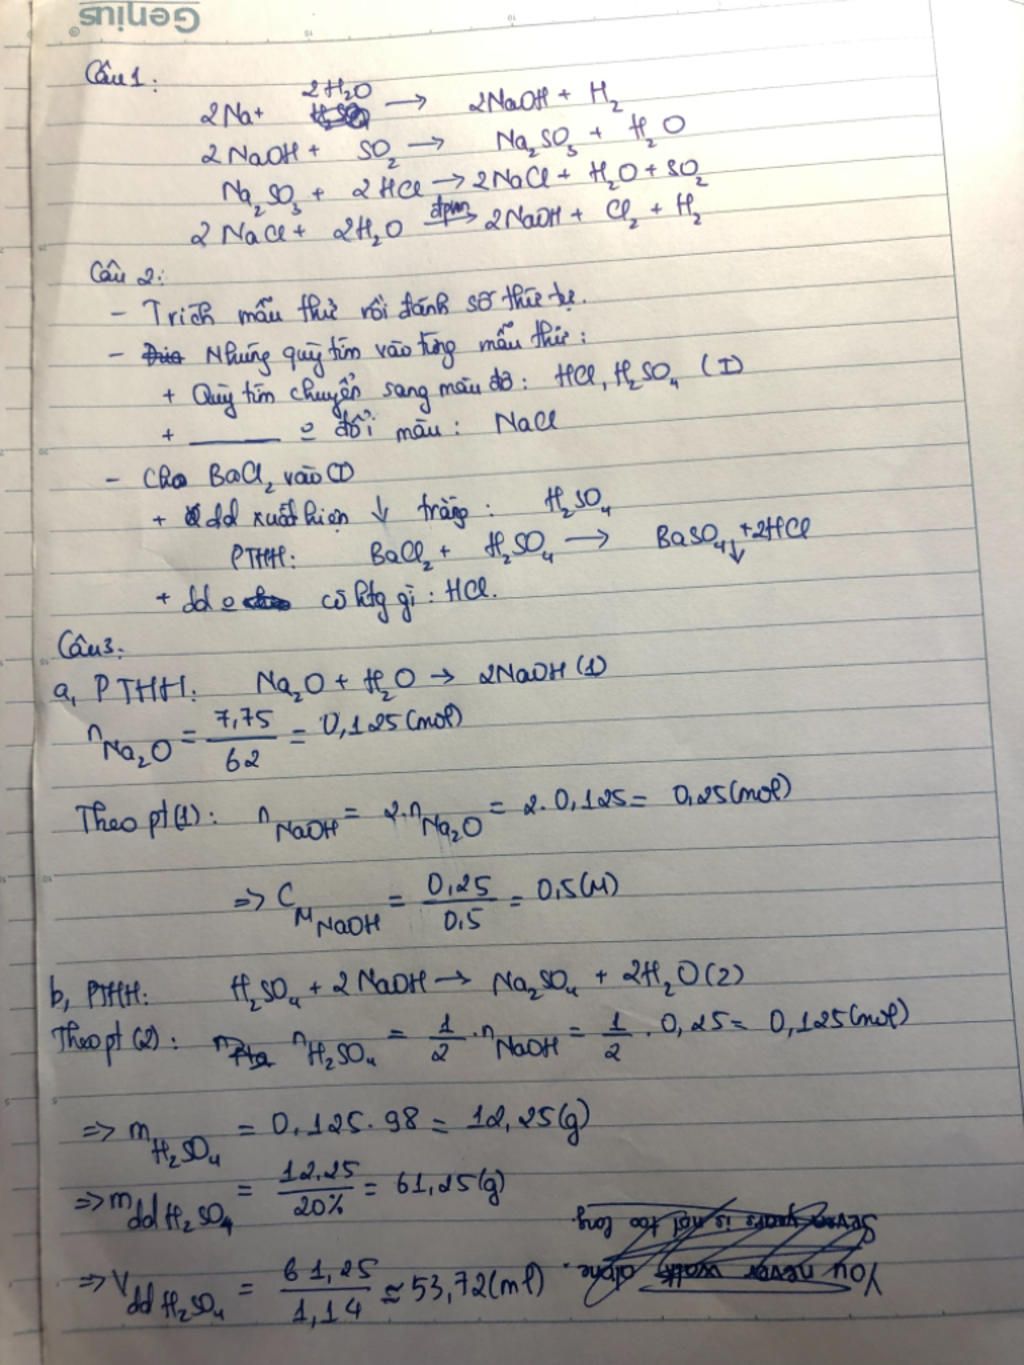 Genius
Câu 1:
2Na + 2H₂O → 2NaOH + H₂
2NaOH + SO₂ → Na₂SO₃ + H₂O
Na₂SO₃ + 2HCl → 2NaCl + H₂O + SO₂
2NaCl + 2H₂O đpmn→ 2NaOH + Cl₂ + H₂
Câu 2:
- Trích mẫu thử rồi đánh số thứ tự.
- Nhúng quỳ tím vào từng mẫu thử:
+ Quỳ tím chuyển sang màu đỏ: HCl, H₂SO₄ (I)
+ ______ o đổi màu: NaCl
- Cho BaCl₂ vào (I)
+ dd xuất hiện ↓ trắng: H₂SO₄
PTHH: BaCl₂ + H₂SO₄ → BaSO₄↓ + 2HCl
+ dd o có htg gì: HCl.
Câu 3:
a, PTHH: Na₂O + H₂O → 2NaOH (1)
n Na₂O = 7,75/62 = 0,125 (mol)
Theo pt (1): n NaOH = 2.n Na₂O = 2.0,125 = 0,25 (mol)
=> C M NaOH = 0,25/0,5 = 0,5 (M)
b, PTHH: H₂SO₄ + 2NaOH → Na₂SO₄ + 2H₂O (2)
Theo pt (2): n H₂SO₄ = 1/2 . n NaOH = 1/2 . 0,25 = 0,125 (mol)
=> m H₂SO₄ = 0,125.98 = 12,25 (g)
=> m dd H₂SO₄ = 12,25/20% = 61,25 (g)
=> V dd H₂SO₄ = 61,25/1,14 ≈ 53,72 (ml)
You never walk alone.
Seven years is not too long.